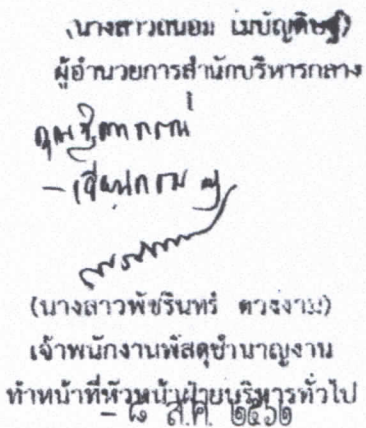 (นางสาวถนอม เมบัญดิษฐ์)
ผู้อำนวยการสำนักบริหารกลาง
คุณ
- เวียนกรม ๆ
(นางสาวพัชรินทร์ ดวงงาม)
เจ้าพนักงานพัสดุชำนาญงาน
ทำหน้าที่หัวหน้าฝ่ายบริหารทั่วไป
- ๘ ส.ค. ๒๕๖๒